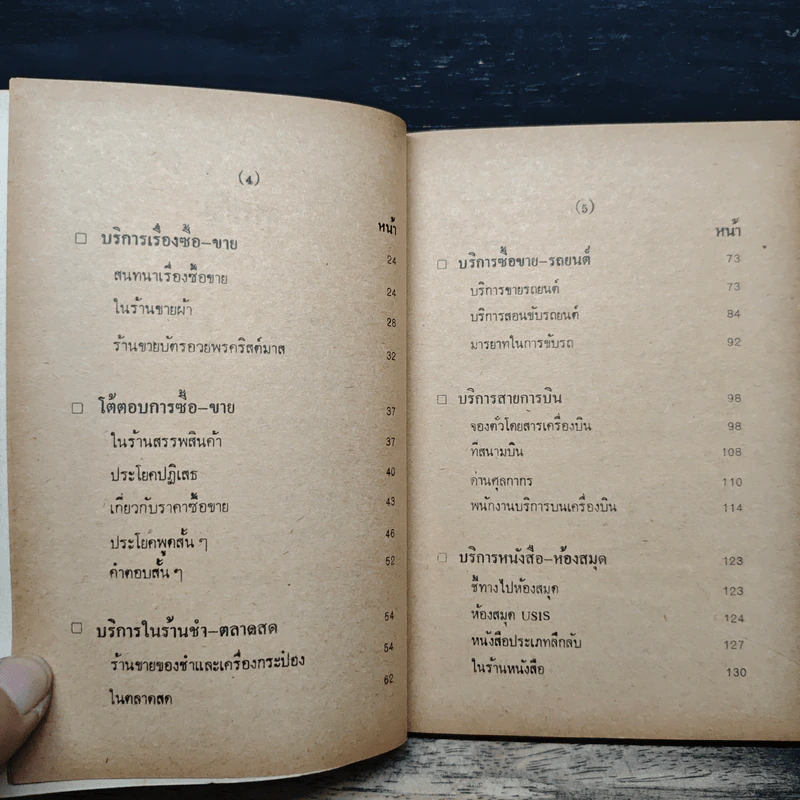 (4)
หน้า
บริการเรื่องซื้อ-ขาย 24
สนทนาเรื่องซื้อขาย 24
ในร้านขายผ้า 28
ร้านขายบัตรอวยพรคริสต์มาส 32
โต้ตอบการซื้อ-ขาย 37
ในร้านสรรพสินค้า 37
ประโยคปฏิเสธ 40
เกี่ยวกับราคาซื้อขาย 43
ประโยคพูดสั้น ๆ 46
คำตอบสั้น ๆ 52
บริการในร้านชำ-ตลาดสด 54
ร้านขายของชำและเครื่องกระป๋อง 54
ในตลาดสด 62
(5)
หน้า
บริการซื้อขาย-รถยนต์ 73
บริการขายรถยนต์ 73
บริการสอนขับรถยนต์ 84
มารยาทในการขับรถ 92
บริการสายการบิน 98
จองตั๋วโดยสารเครื่องบิน 98
ที่สนามบิน 108
ด่านศุลกากร 110
พนักงานบริการบนเครื่องบิน 114
บริการหนังสือ-ห้องสมุด 123
ชี้ทางไปห้องสมุด 123
ห้องสมุด USIS 124
หนังสือประเภทลึกลับ 127
ในร้านหนังสือ 130